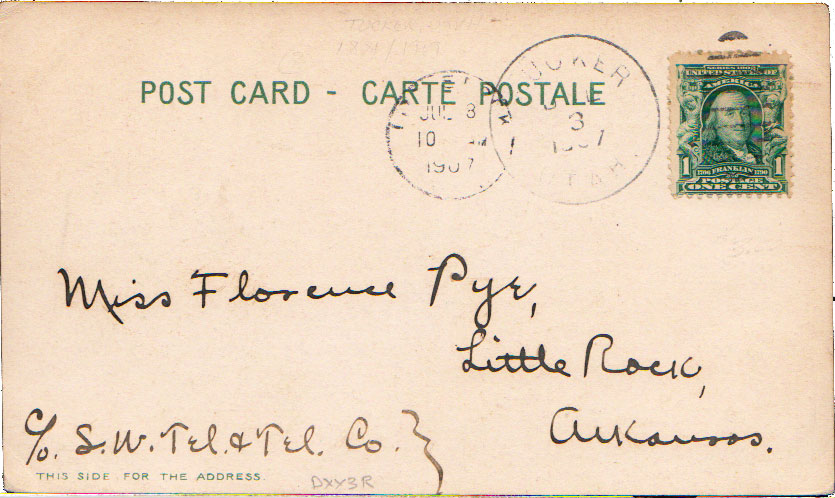 TUCKER UTAH
POST CARD - CARTE POSTALE
JUL 8
10 AM
1907
TUCKER
3
1907
UTAH.
SERIES 1902
UNITED STATES OF
AMERICA
1
1706 FRANKLIN 1790
POSTAGE
ONE CENT
Miss Florence Pye,
Little Rock,
Arkansas.
c/o. S.W. Tel. & Tel. Co.
THIS SIDE FOR THE ADDRESS.
DXY3R